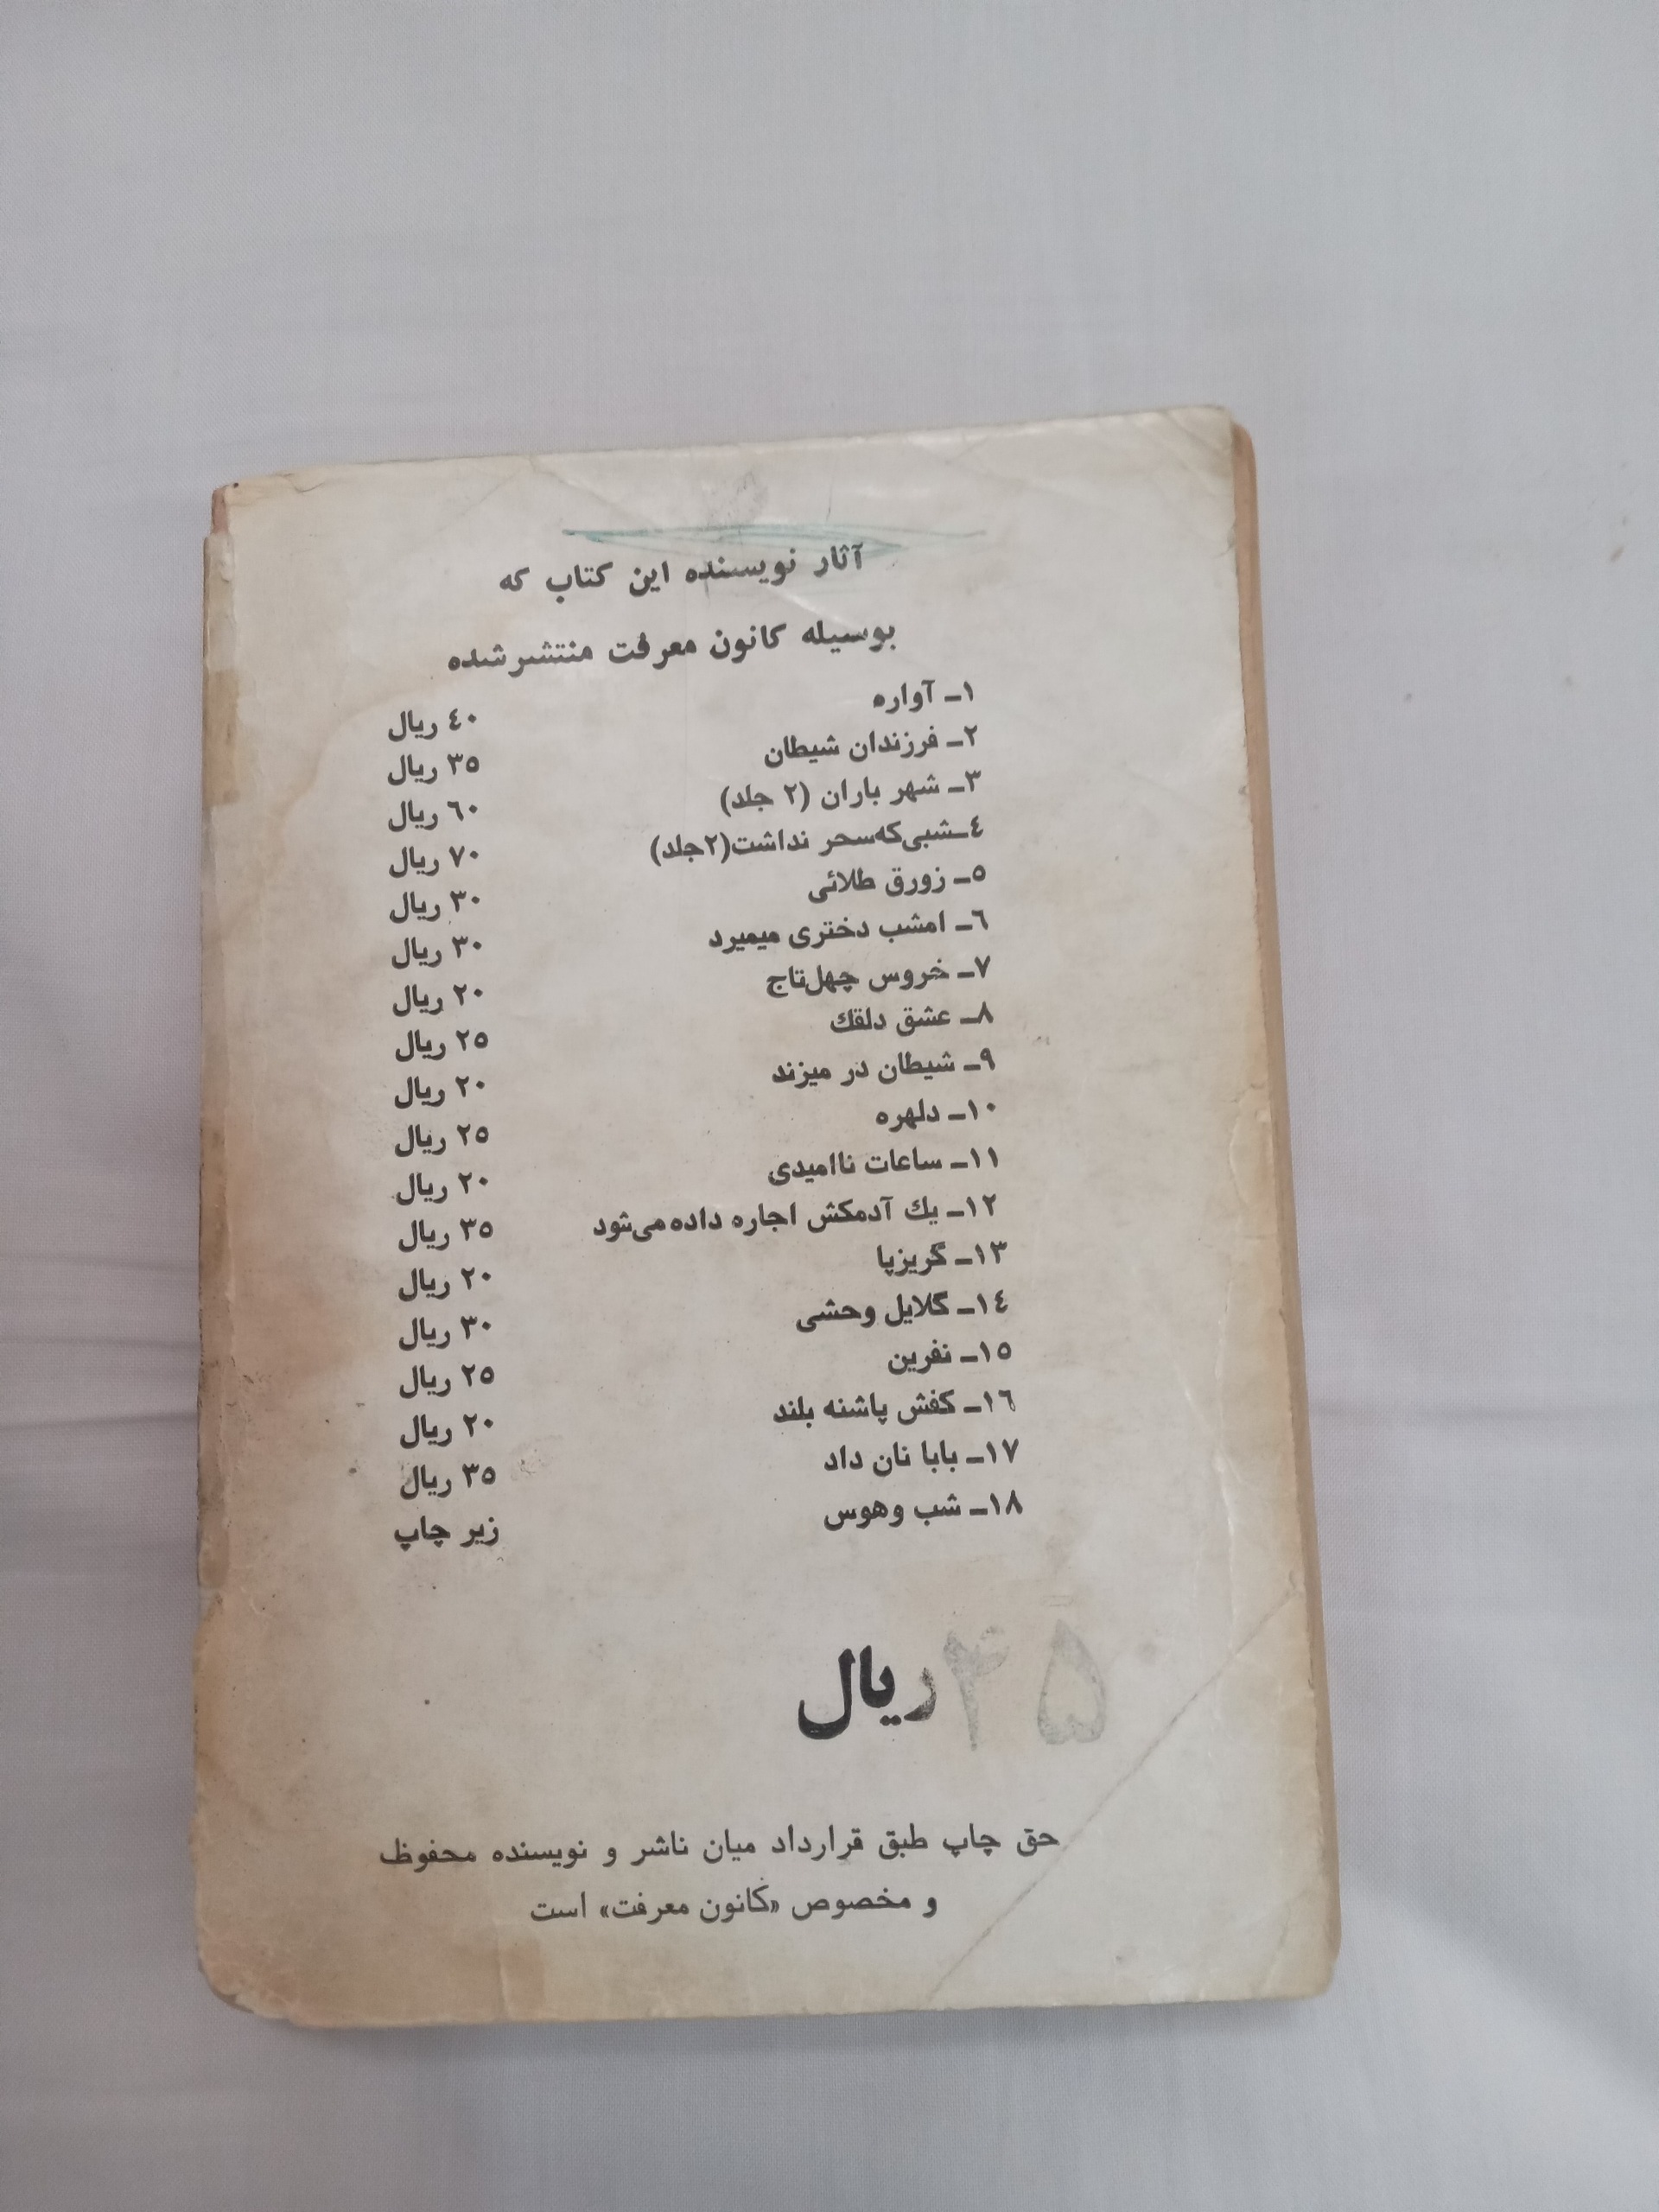 آثار نویسنده این کتاب که
بوسیله کانون معرفت منتشر شده
۱ـ آواره ٤۰ ریال
۲ـ فرزندان شیطان ۳٥ ریال
۳ـ شهر باران (۲ جلد) ٦۰ ریال
٤ـ شبی‌که‌سحر نداشت(۲جلد) ۷۰ ریال
٥ـ زورق طلائی ۳۰ ریال
٦ـ امشب دختری میمیرد ۳۰ ریال
۷ـ خروس چهل‌تاج ۲۰ ریال
۸ـ عشق دلقك ۲٥ ریال
۹ـ شیطان در میزند ۲۰ ریال
۱۰ـ دلهره ۲٥ ریال
۱۱ـ ساعات ناامیدی ۲۰ ریال
۱۲ـ یك آدمکش اجاره داده‌می‌شود ۳٥ ریال
۱۳ـ گریزپا ۲۰ ریال
۱٤ـ گلایل وحشی ۳۰ ریال
۱٥ـ نفرین ۲٥ ریال
۱٦ـ کفش پاشنه بلند ۲۰ ریال
۱۷ـ بابا نان داد ۳٥ ریال
۱۸ـ شب وهوس زیر چاپ
ریال
حق چاپ طبق قرارداد میان ناشر و نویسنده محفوظ
و مخصوص «کانون معرفت» است